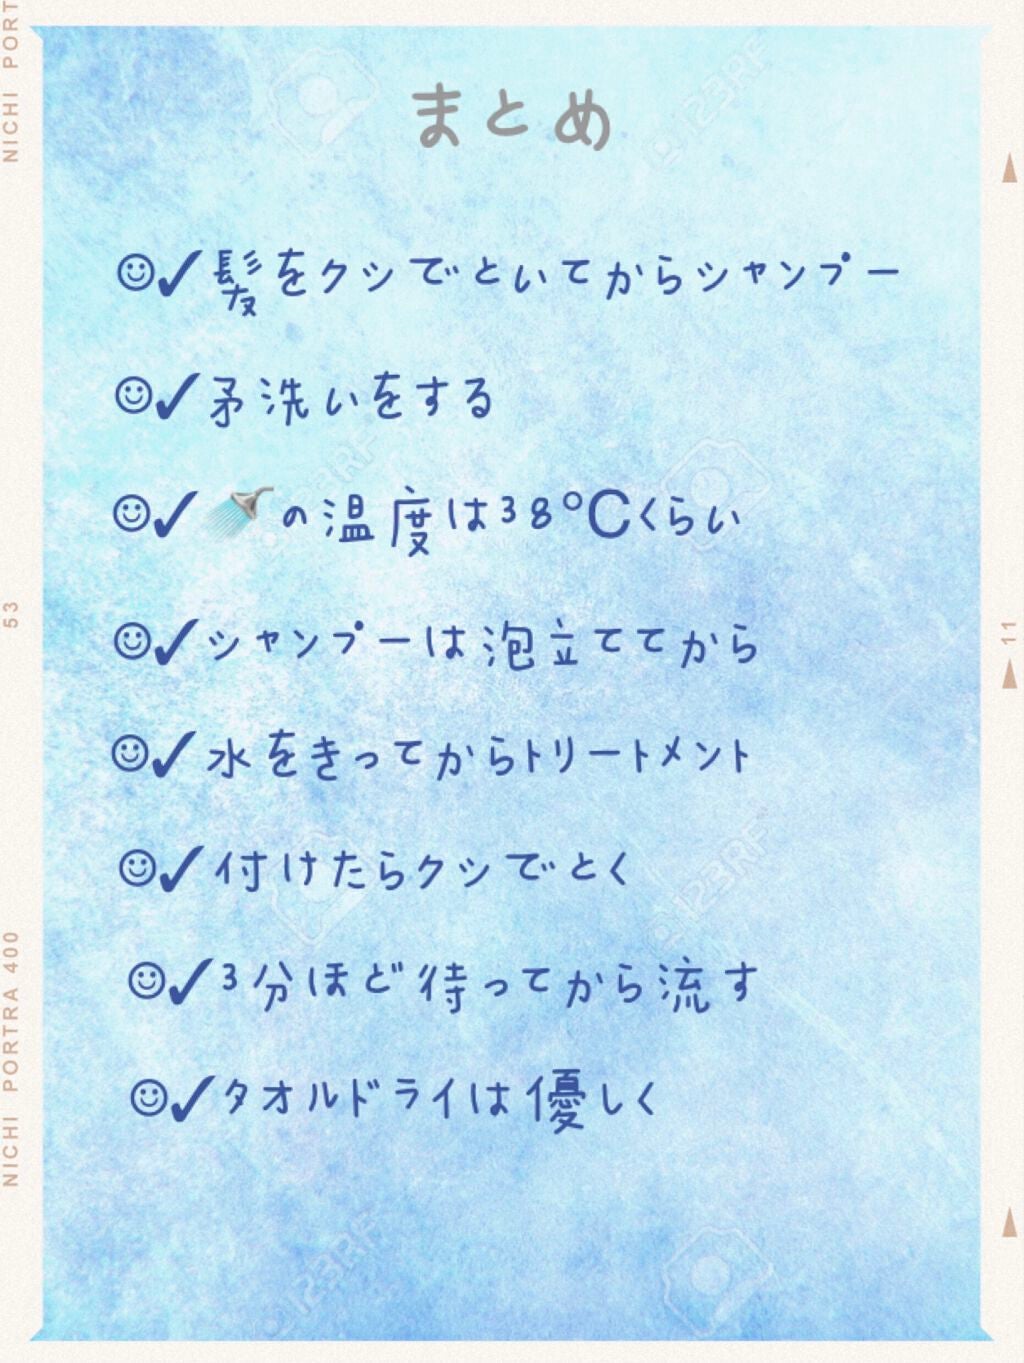 まとめ
☺✔髪をクシでといてからシャンプー
☺✔矛洗いをする
☺✔🚿の温度は38℃くらい
☺✔シャンプーは泡立ててから
☺✔水をきってからトリートメント
☺✔付けたらクシでとく
☺✔3分ほど待ってから流す
☺✔タオルドライは優しく
NICHI PORT
53
NICHI PORTRA 400
11
123RF
123RF
123RF
123RF
123RF